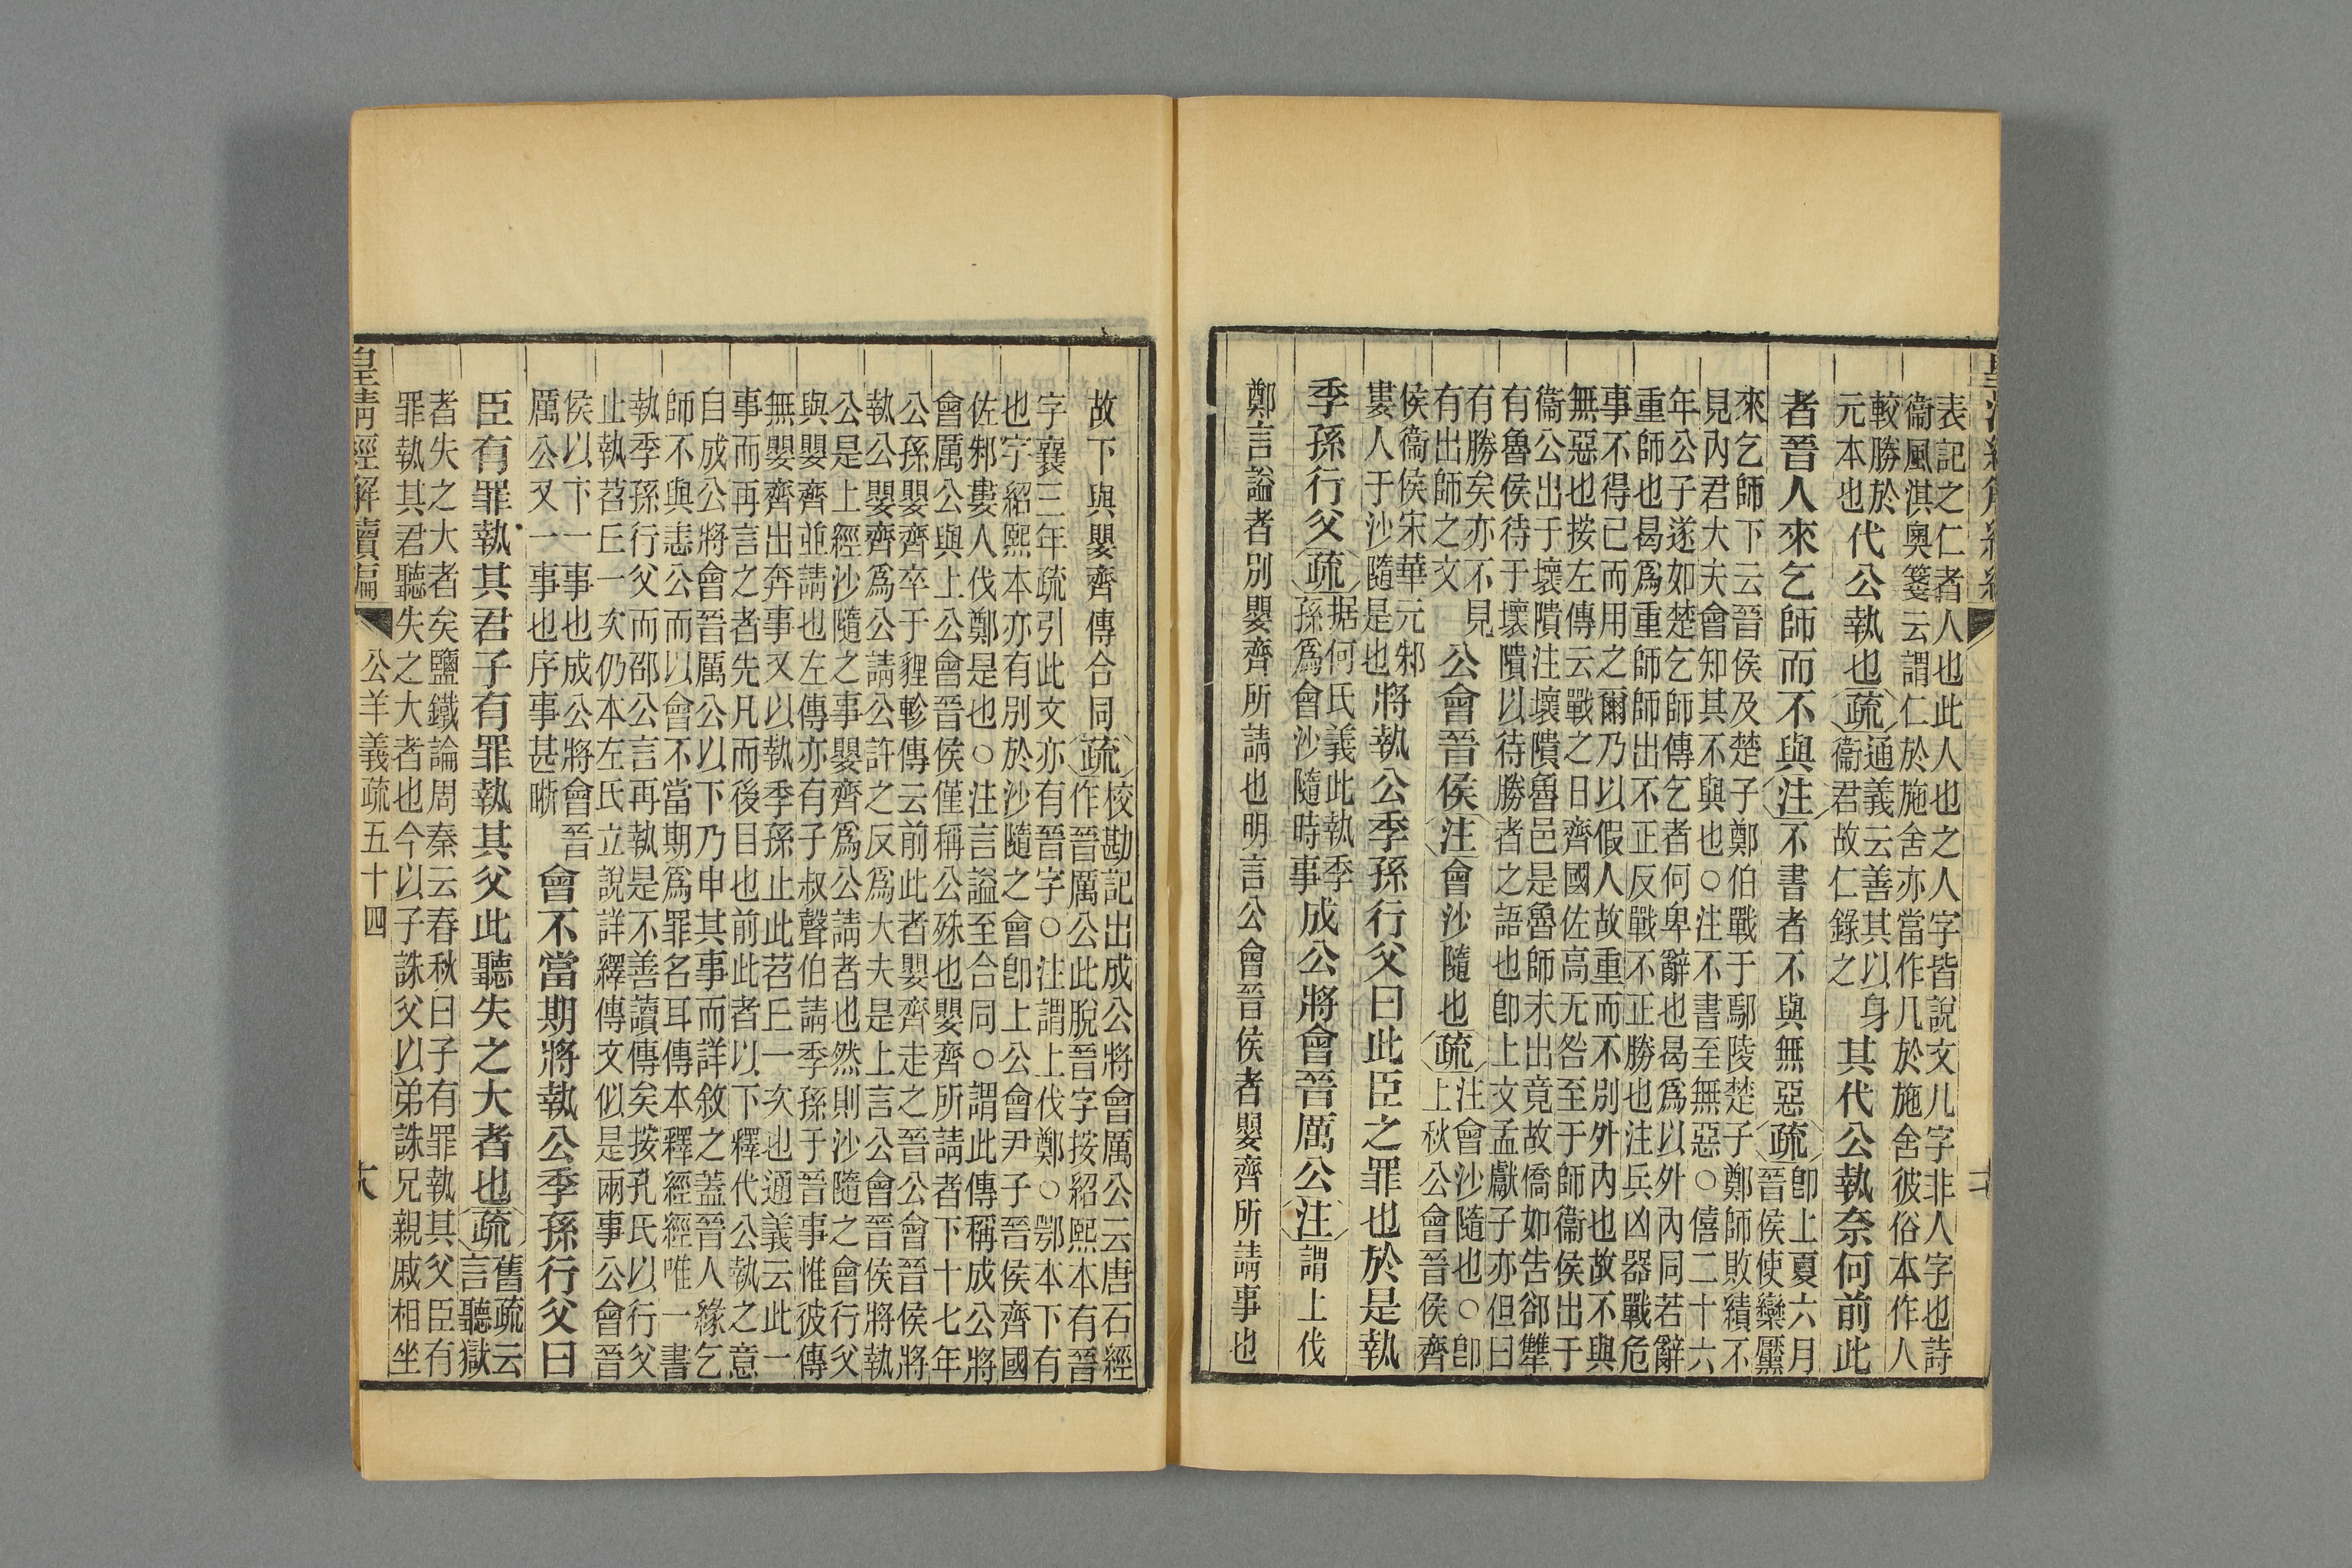 表記之仁者人也此人也之人字皆說文儿字非人字也詩
衞風淇奧箋云謂仁於施舍亦當作几於施舍彼俗本作人
較勝於
元本也
代公執也
疏
通義云善其以身
衞君故仁錄之
其代公執奈何前此
者晉人來乞師而不與
注
不書者不與無惡
疏
卽上夏六月
晉侯使欒黶
來乞師下云晉侯及楚子鄭伯戰于鄢陵楚子鄭師敗績不
見內君大夫會知其不與也○注不書至無惡○僖二十六
年公子遂如楚乞師傳乞者何卑辭也曷爲以外內同若辭
重師也曷爲重師師出不正反戰不正勝也注兵凶器戰危
事不得已而用之爾乃以假人故重而不別外內也故不與
無惡也按左傳云戰之日齊國佐高无咎至于師衞侯出于
衞公出于壞隤注壞隤魯邑是魯師未出竟故僑如告郤犨
有魯侯待于壞隤以待勝者之語也卽上文孟獻子亦但曰
有勝矣亦不見
有出師之文
公會晉侯
注
會沙隨也
疏
注會沙隨也○卽
上秋公會晉侯齊
侯衞侯宋華元邾
婁人于沙隨是也
將執公季孫行父曰此臣之罪也於是執
季孫行父
疏
据何氏義此執季
孫爲會沙隨時事
成公將會晉厲公
注
謂上伐
鄭言謚者別嬰齊所請也明言公會晉侯者嬰齊所請事也
故下與嬰齊傳合同
疏
校勘記出成公將會厲公云唐石經
作晉厲公此脫晉字按紹熙本有晉
字襄三年疏引此文亦有晉字○注謂上伐鄭○鄂本下有
也字紹熙本亦有別於沙隨之會卽上公會尹子晉侯齊國
佐邾婁人伐鄭是也○注言謚至合同○謂此傳稱成公將
會厲公與上公會晉侯僅稱公殊也嬰齊所請者下十七年
公孫嬰齊卒于貍軫傳云前此者嬰齊走之晉公會晉侯將
執公嬰齊爲公請公許之反爲大夫是上言公會晉侯將執
公是上經沙隨之事嬰齊爲公請者也然則沙隨之會行父
與嬰齊並請也左傳亦有子叔聲伯請季孫于晉事惟彼傳
無嬰齊出奔事又以執季孫止此苕丘一次也通義云此一
事而再言之者先凡而後目也前此者以下釋代公執之意
自成公將會晉厲公以下乃申其事而詳敘之蓋晉人緣乞
師不與恚公而以會不當期爲罪名耳傳本釋經經唯一書
執季孫行父而邵公言再執是不善讀傳矣按孔氏以行父
止執苕丘一次仍本左氏立說詳繹傳文似是兩事公會晉
侯以下一事也成公將會晉
厲公又一事也序事甚晰
會不當期將執公季孫行父曰
臣有罪執其君子有罪執其父此聽失之大者也
疏
舊疏云
言聽獄
者失之大者矣鹽鐵論周秦云春秋曰子有罪執其父臣有
罪執其君聽失之大者也今以子誅父以弟誅兄親戚相坐
皇淸經解續編
公羊義疏五十四